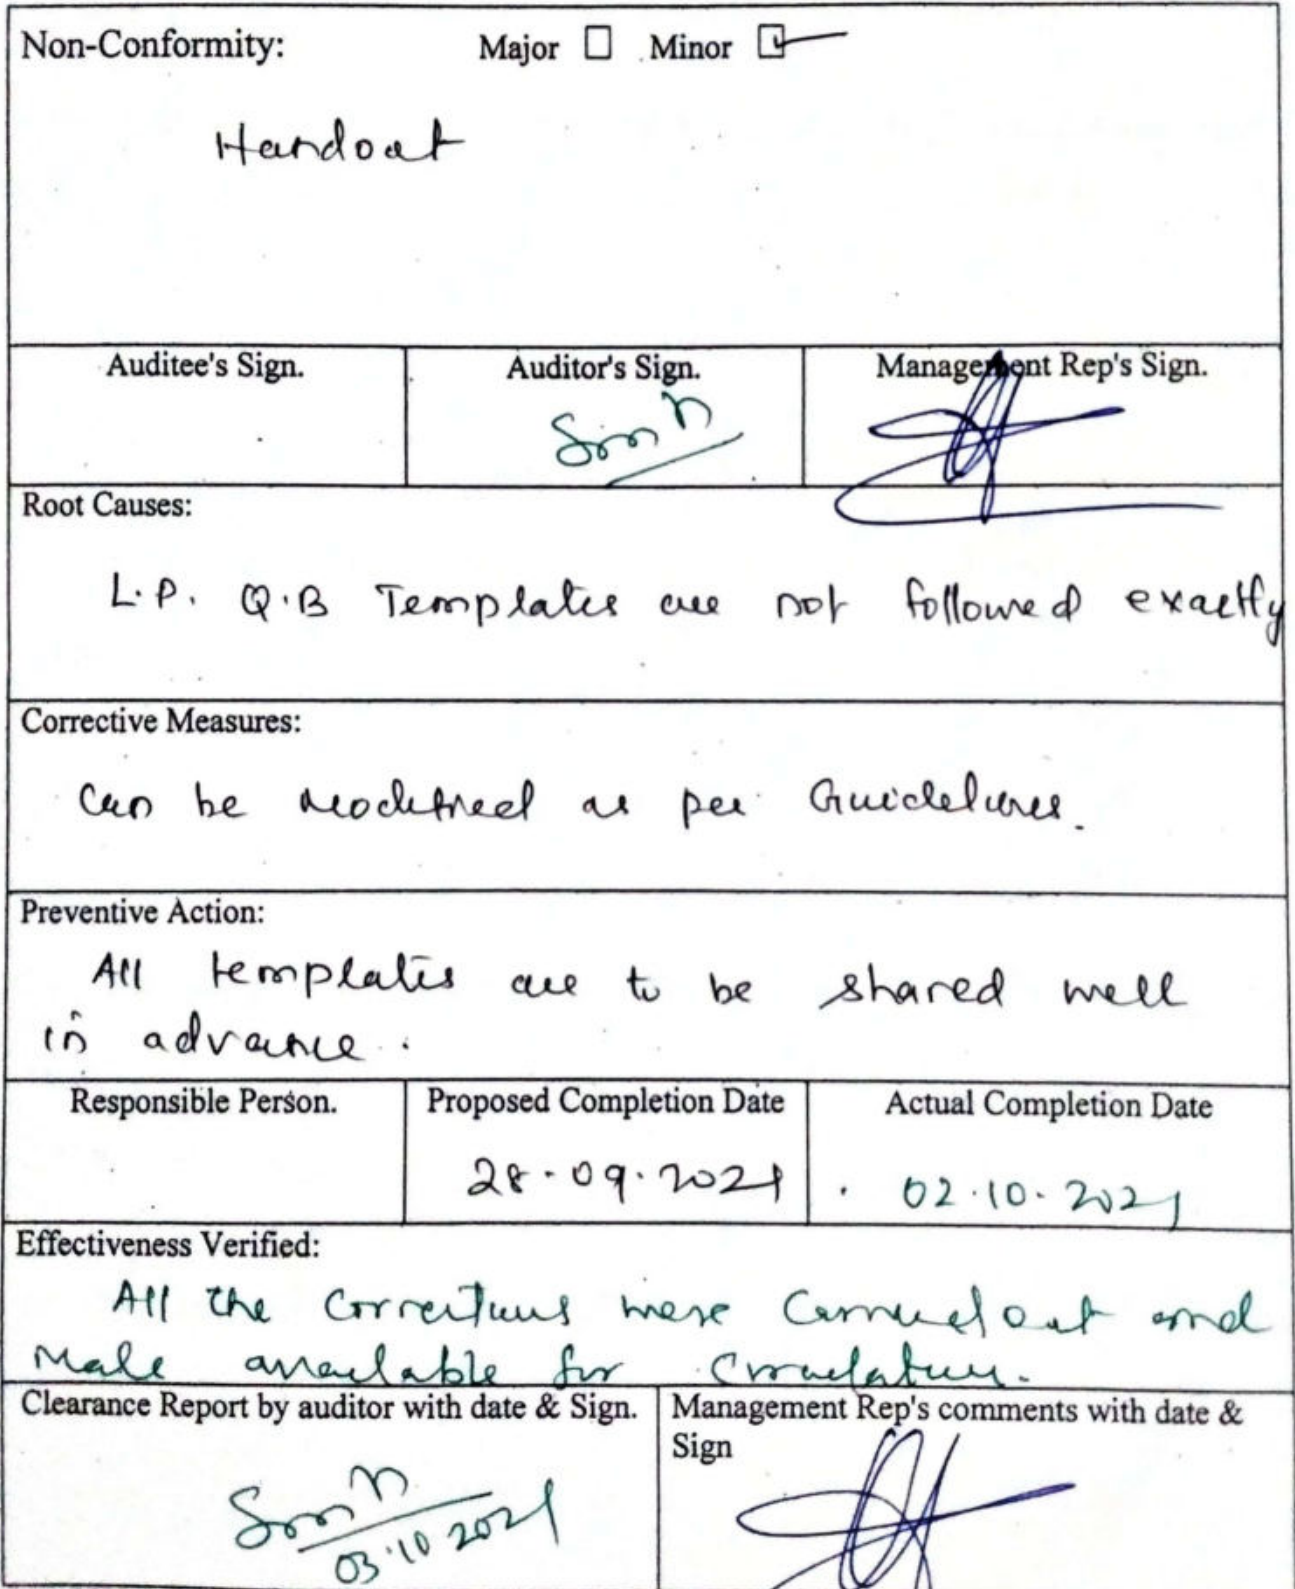 Non-Conformity: Major ☐ Minor ☑
Handout
Auditee's Sign. Auditor's Sign. Management Rep's Sign.
Root Causes:
L.P. Q.B Templates are not followed exactly
Corrective Measures:
Can be modified as per Guidelines.
Preventive Action:
All templates are to be shared well
in advance.
Responsible Person. Proposed Completion Date Actual Completion Date
28.09.2021 02.10.2021
Effectiveness Verified:
All the corrections were carried out and
made available for circulation.
Clearance Report by auditor with date & Sign. Management Rep's comments with date &
Sign
03.10.2021